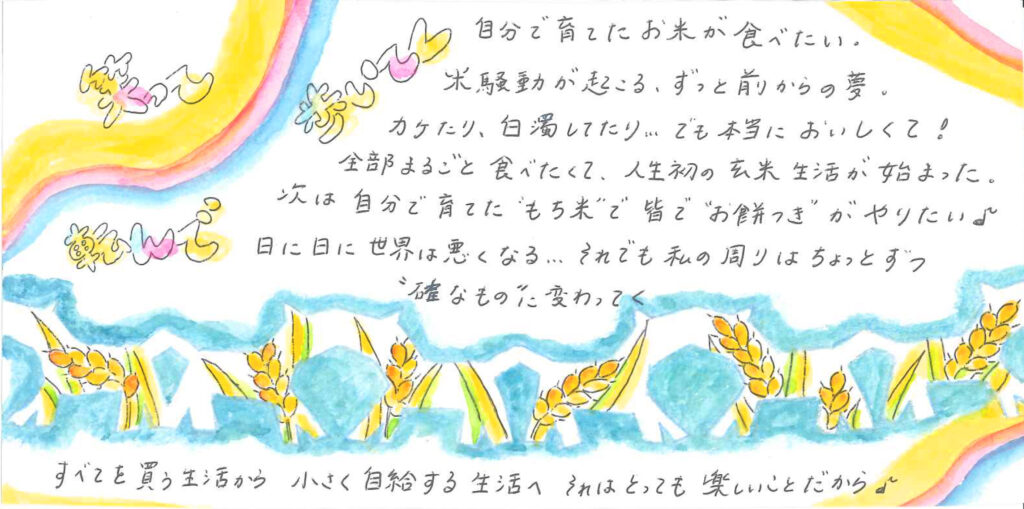 笑って
歩いてく
楽しんで
自分で育てたお米が食べたい。
米騒動が起こる、ずっと前からの夢。
カケたり、白濁してたり…でも本当においしくて!
全部まるごと食べたくて、人生初の玄米生活が始まった。
次は自分で育てた"もち米"で皆で"お餅つき"がやりたい♪
日に日に世界は悪くなる…それでも私の周りはちょっとずつ
"確なもの"に変わってく
すべてを買う生活から 小さく自給する生活へ それはとっても楽しいことだから♪